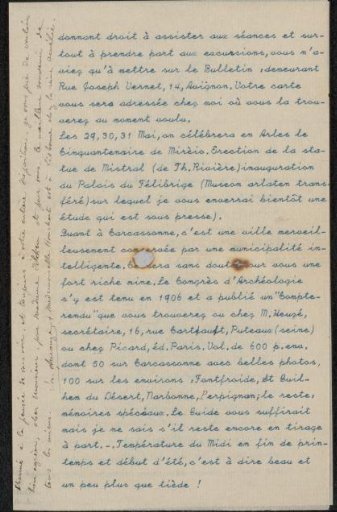 donnant droit à assister aux séances et sur-
tout à prendre part aux excursions, vous n'a-
viez qu'à mettre sur le Bulletin : demeurant
Rue Joseph Vernet, 14, Avignon. Votre carte
vous sera adressée chez moi où vous la trou-
verez au moment voulu.
Les 29, 30, 31 Mai, on célébrera en Arles le
Cinquantenaire de Mirèio. Erection de la sta-
tue de Mistral (de Th. Rivière) inauguration
du Palais du Félibrige (Museon arlaten trans-
féré) sur lequel je vous enverrai bientôt une
étude qui est sous presse).
Quant à Carcassonne, c'est une ville merveil-
leusement conservée par une municipalité in-
telligente. Ce sera sans doute pour vous une
fort riche mine. Le Congrès d'Archéologie
s'y est tenu en 1906 et a publié un "Compte-
rendu" que vous trouverez ou chez M. Heuzé,
secrétaire, 16, rue Cartault, Puteaux (seine)
ou chez Picard, éd. Paris. Vol. de 600 p. env.
dont 50 sur Carcassonne avec belles photos,
100 sur les environs : Fontfroide, St Guil-
hem du Désert, Narbonne, Perpignan; le reste:
mémoires spéciaux. Le Guide vous suffirait
mais je ne sais s'il reste encore en tirage
à part. -. Température du Midi en fin de prin-
temps et début d'été, c'est à dire beau et
un peu plus que tiède !